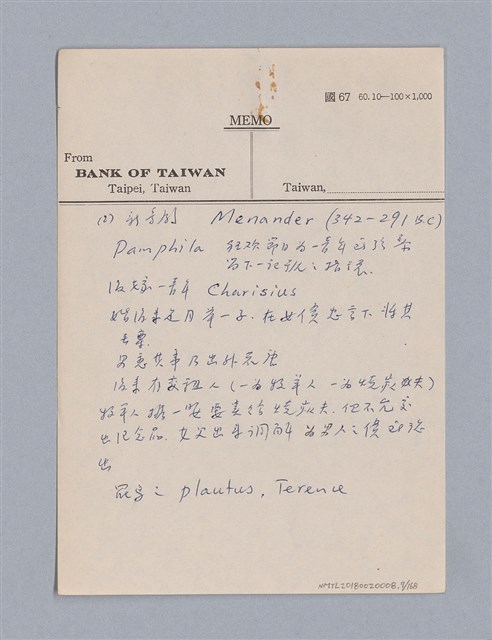 國67 60.10—100×1,000
MEMO
From
BANK OF TAIWAN
Taipei, Taiwan
Taiwan,
(2) 新喜劇 Menander (342-291 B.C)
Pamphila 狂欢節日为一青年
留下一記號之指環
後嫁一青年 Charisius
婚後未足月举一子.在女僕怂言下將其
去棄
男悉其事乃出外
後來有交讼人(一为牧羊人 一为燒炭夫)
牧羊人携一嬰要卖給燒炭夫.但不允交
出记念品.女父出来调解 为男人之僕
出
Plautus, Terence
NMTL20180020008.7/168